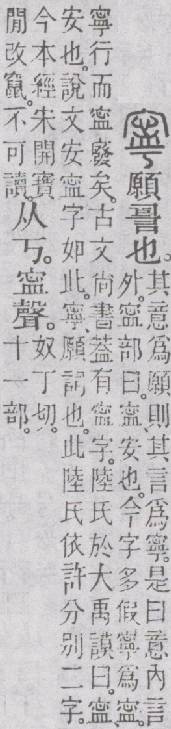 寧願䛐也。
其意爲願則其言爲寧。是曰意內言
外。寍部曰。寍、安也。今字多假寧爲寍。
寧行而寍廢矣。古文尙書葢有寍字。陸氏於大禹謨曰。寍、
安也。說文安寍字如此。寧、願詞也。此陸氏依許分別二字。
今本經宋開寶
閒改竄。不可讀。
从丂。寍聲。
奴丁切。
十一部。